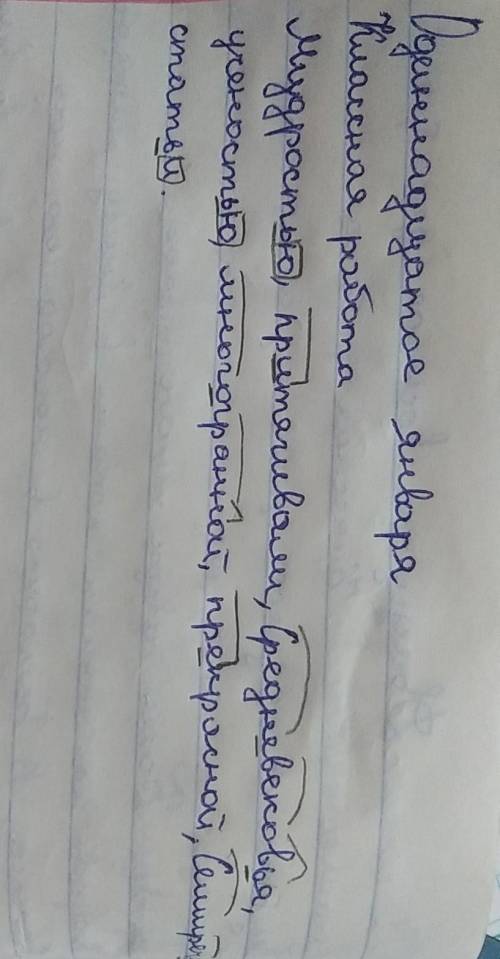 Одиннадцатое января
Классная работа
Мудростью, притягивали, Средневековья,
ученостью, многогранной, прекрасной,
статьи.